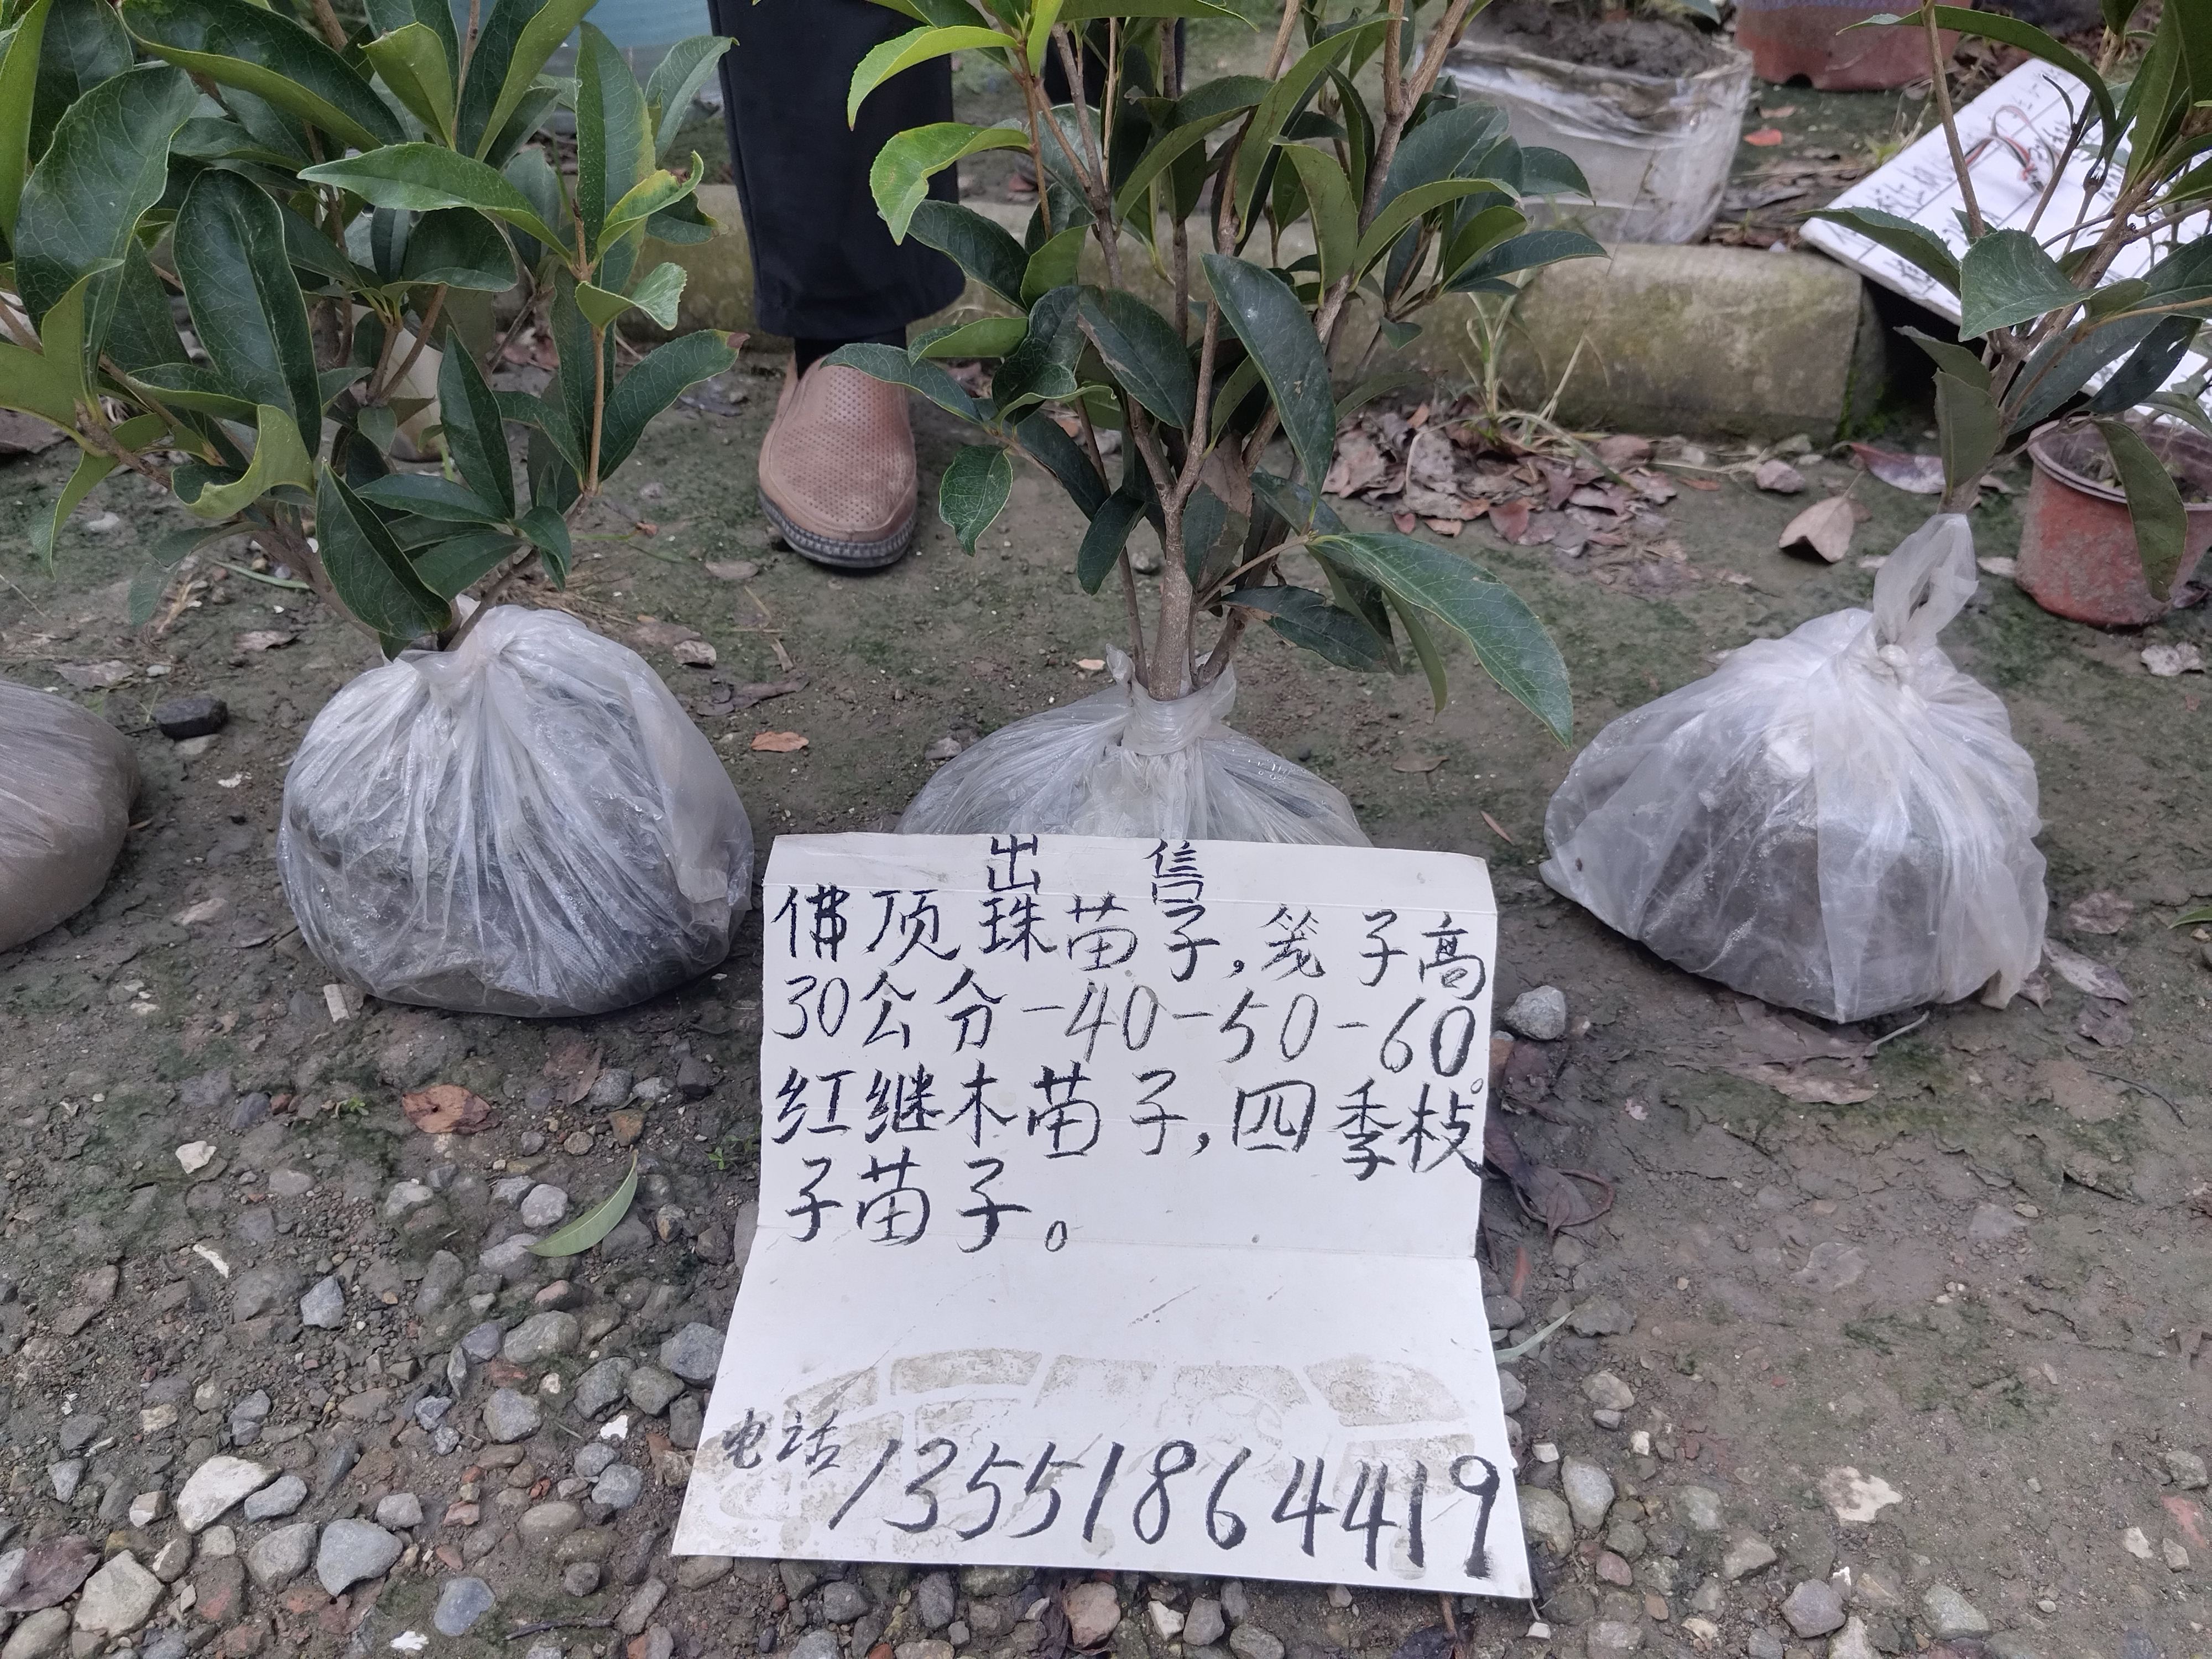 出售
佛顶珠苗子,笼子高
30公分-40-50-60。
红继木苗子,四季栀
子苗子。
电话13551864419